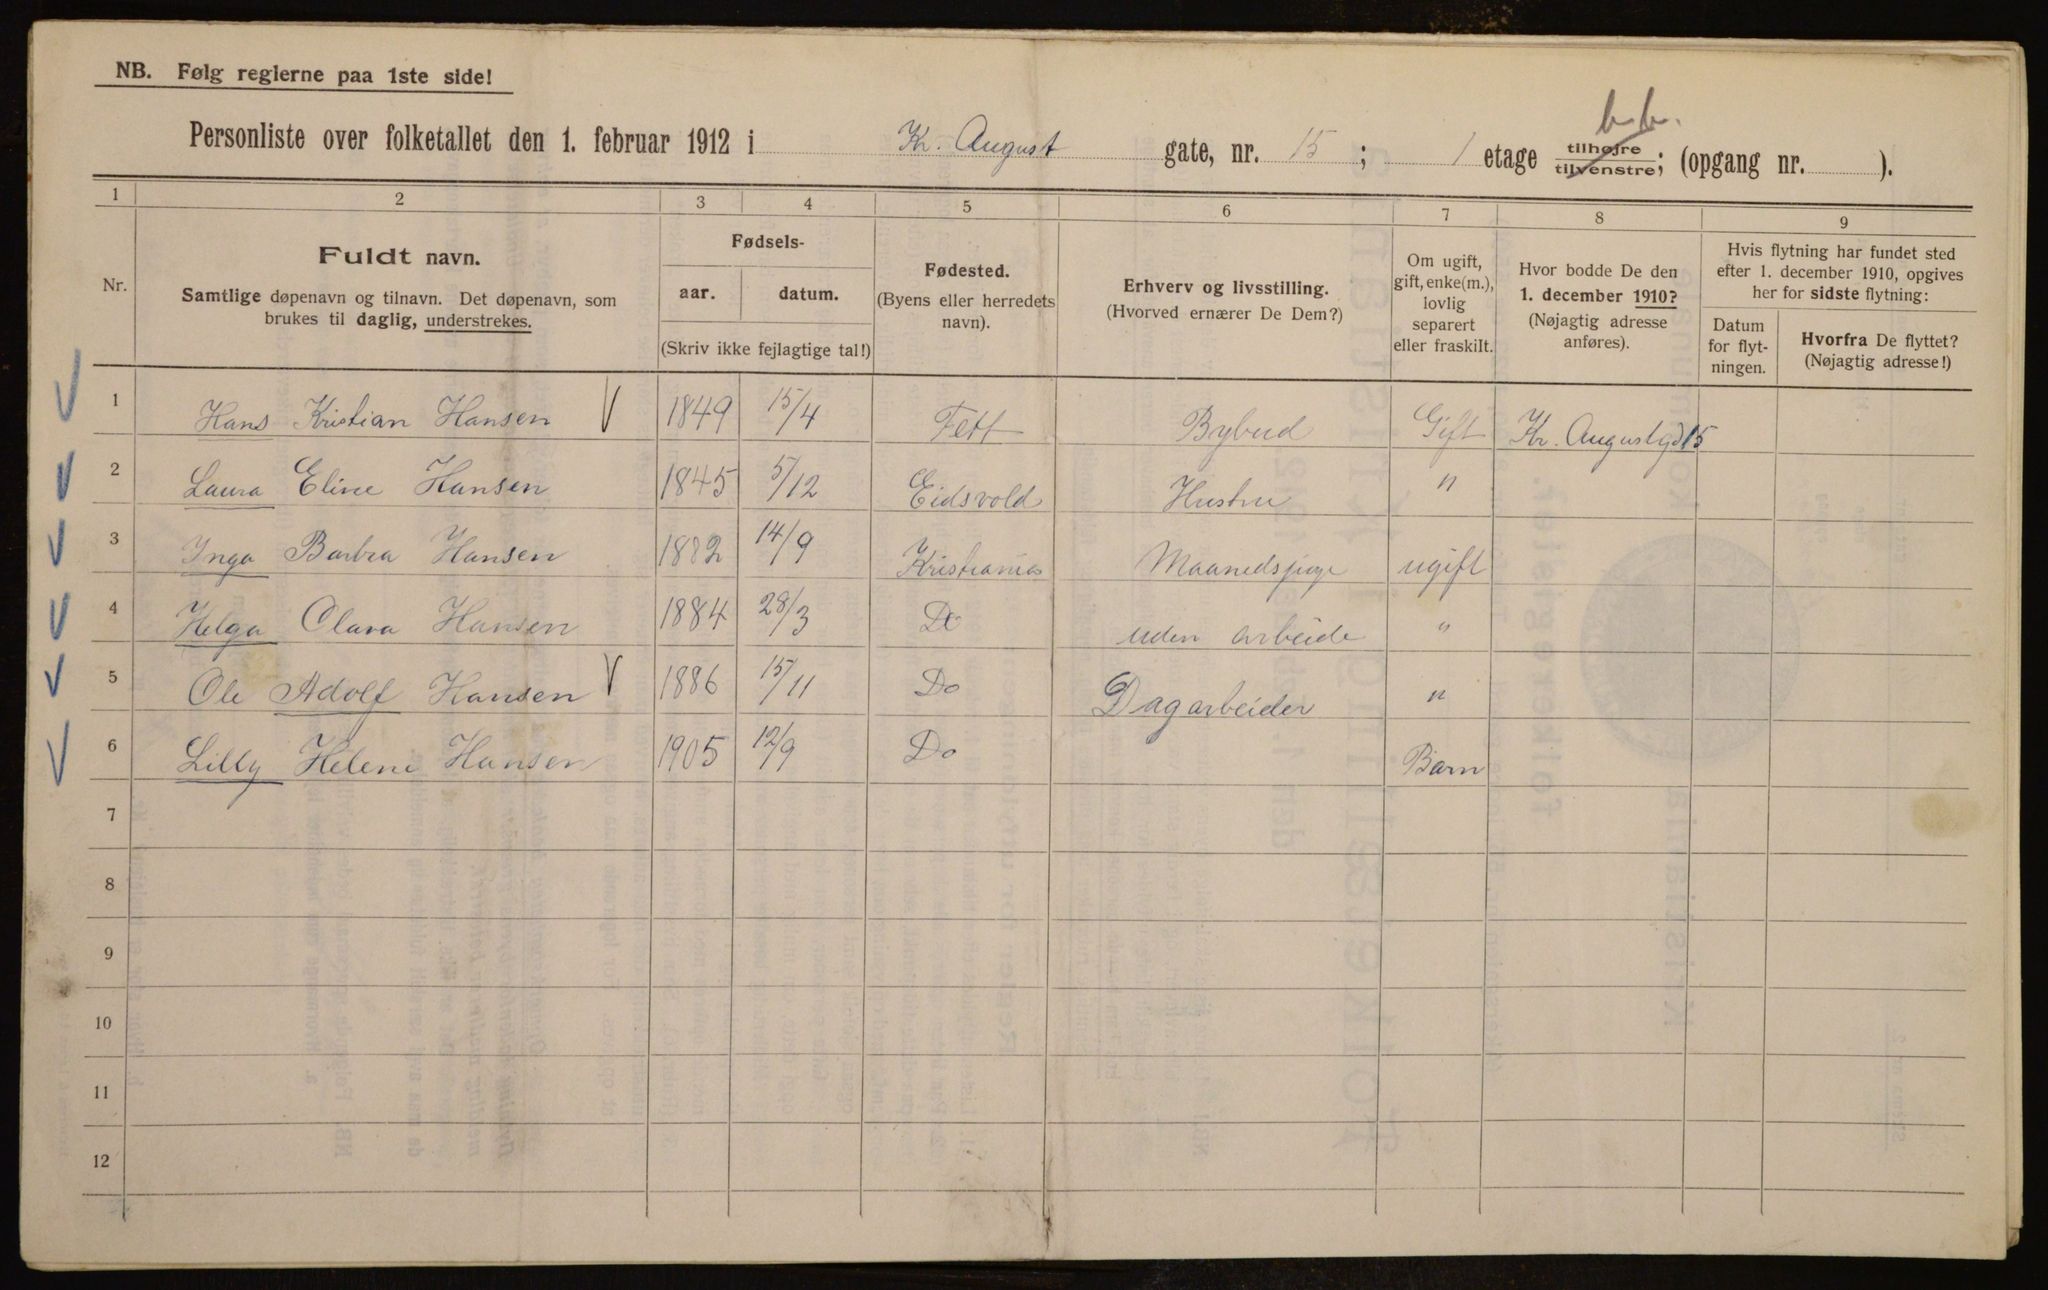 NB. Følg reglerne paa 1ste side!
Personliste over folketallet den 1. februar 1912 i Kr. August gate, nr. 15; 1 etage tilhøjre tilvenstre; (opgang nr. ).
1 2 3 4 5 6 7 8 9
Nr.
Fuldt navn.
Samtlige døpenavn og tilnavn. Det døpenavn, som
brukes til daglig, understrekes.
Fødsels-
aar. datum.
(Skriv ikke fejlagtige tal!)
Fødested.
(Byens eller herredets
navn).
Erhverv og livsstilling.
(Hvorved ernærer De Dem?)
Om ugift,
gift, enke(m.),
lovlig
separert
eller fraskilt.
Hvor bodde De den
1. december 1910?
(Nøjagtig adresse
anføres).
Hvis flytning har fundet sted
efter 1. december 1910, opgives
her for sidste flytning:
Datum
for flyt-
ningen.
Hvorfra De flyttet?
(Nøjagtig adresse!)
1 Hans Kristian Hansen 1849 15/4 Fett Bybud Gift Kr. Augustgd 15
2 Laura Eline Hansen 1845 5/12 Eidsvold Hustru "
3 Inga Barbra Hansen 1882 14/9 Kristiania Maanedspige ugift
4 Helga Clara Hansen 1884 28/3 Do uden arbeide "
5 Ole Adolf Hansen 1886 15/11 Do Dagarbeider "
6 Lilly Helene Hansen 1905 12/9 Do Barn
7
8
9
10
11
12